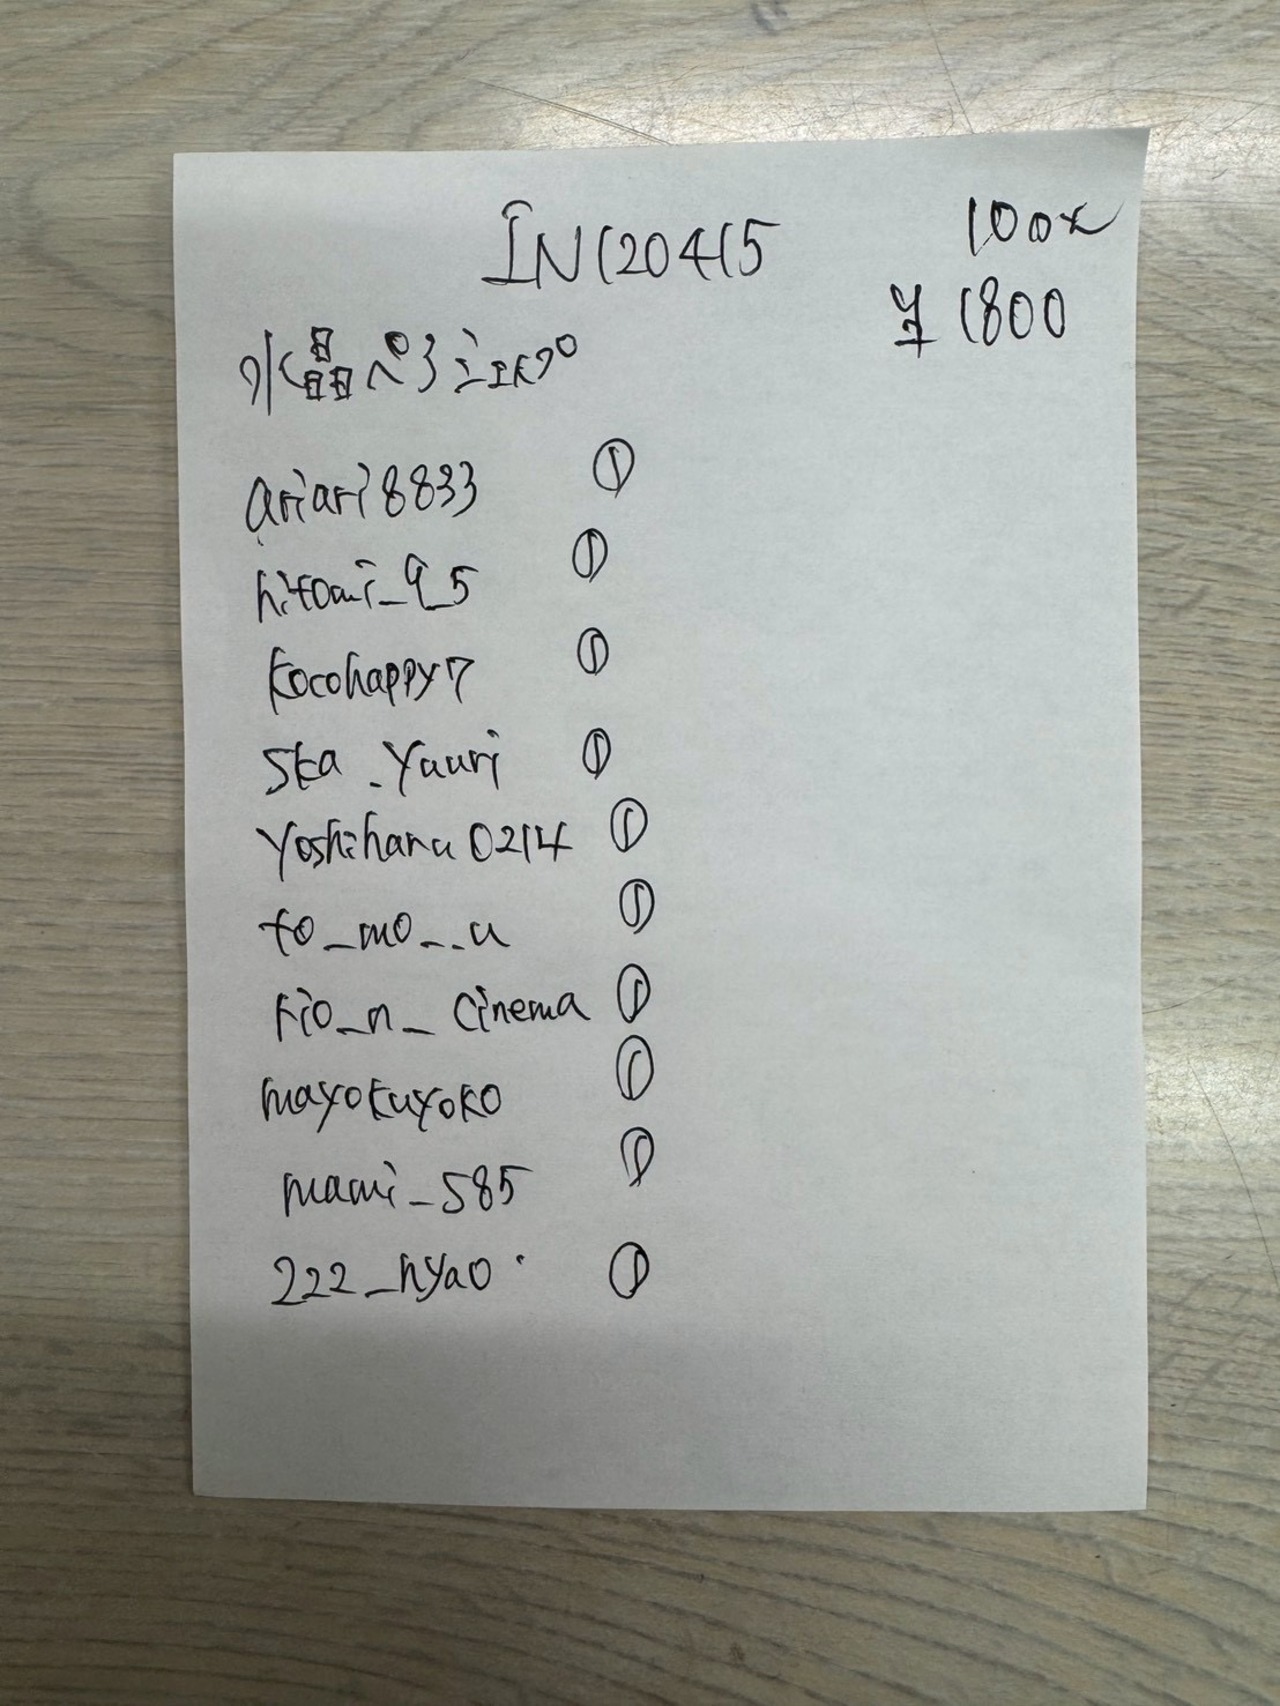 IN120415
100x
¥ 1800
水晶ペ
ariari8833 ①
hitomi_9_5 ①
kocohappy7 ①
ska_yuuri ①
yoshiharu0214 ①
to_mo__u ①
rio_n_cinema ①
mayokuyoko ①
mami_585 ①
222_nyao ①